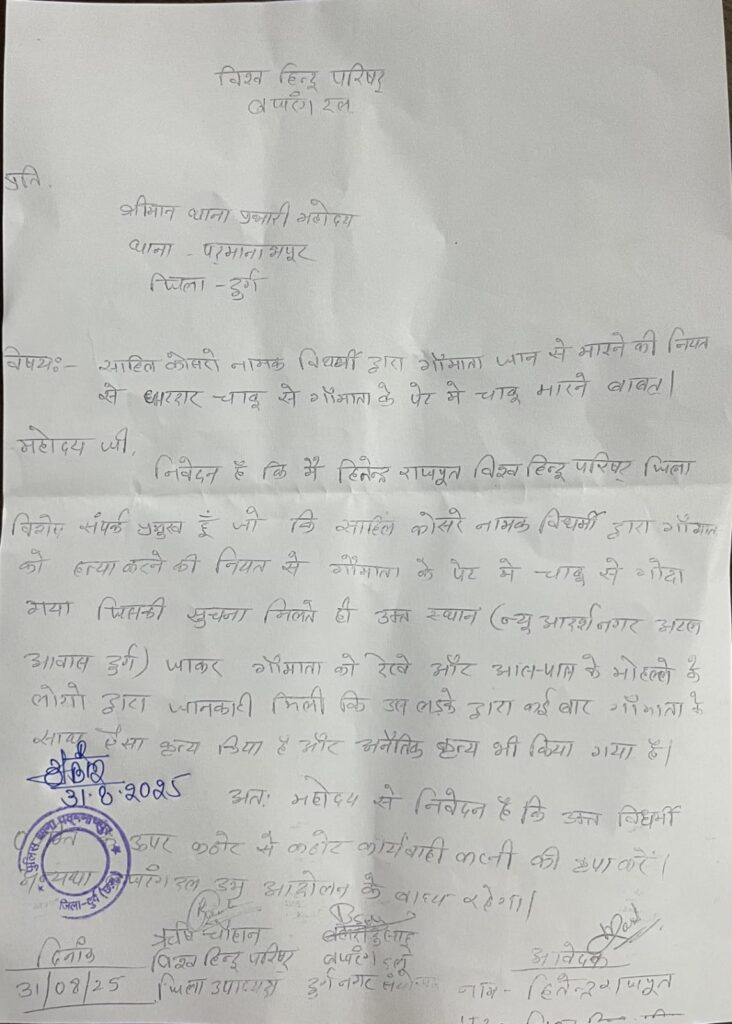 विश्व हिन्दू परिषद्
बजरंग दल
प्रति,
श्रीमान थाना प्रभारी महोदय
थाना - पद्मनाभपुर
जिला - दुर्ग
विषय:- साहिल कोसरे नामक विधर्मी द्वारा गौमाता जान से मारने की नियत
से धारदार चाकू से गौमाता के पेट मे चाकू मारने बाबत।
महोदय जी,
निवेदन है कि मै हितेन्द्र राजपूत विश्व हिन्दू परिषद् जिला
विशेष संपर्क प्रमुख हूँ जो कि साहिल कोसरे नामक विधर्मी द्वारा गौमाता
को हत्या करने की नियत से गौमाता के पेट मे चाकू से गोदा
गया जिसकी सुचना मिलते ही उक्त स्थान (न्यू आदर्शनगर अटल
आवास दुर्ग) जाकर गौमाता को देखे और आस-पास के मोहल्ले के
लोगो द्वारा जानकारी मिली कि उस लड़के द्वारा कई बार गौमाता के
साथ ऐसा कृत्य किया है और अनैतिक कृत्य भी किया गया है।
31.8.2025
अतः महोदय से निवेदन है कि उक्त विधर्मी
के ऊपर कठोर से कठोर कार्यवाही करनी की कृपा करें।
अन्यथा बजरंग दल उग्र आंदोलन के बाध्य रहेगा।
पुलिस थाना पद्मनाभपुर
जिला-दुर्ग (छ.ग.)
दिनांक
31/08/25
ऋषि चौहान
विश्व हिन्दू परिषद्
जिला उपाध्यक्ष
बजरंग दल
दुर्ग नगर संयोजक
आवेदक
नाम - हितेन्द्र राजपूत